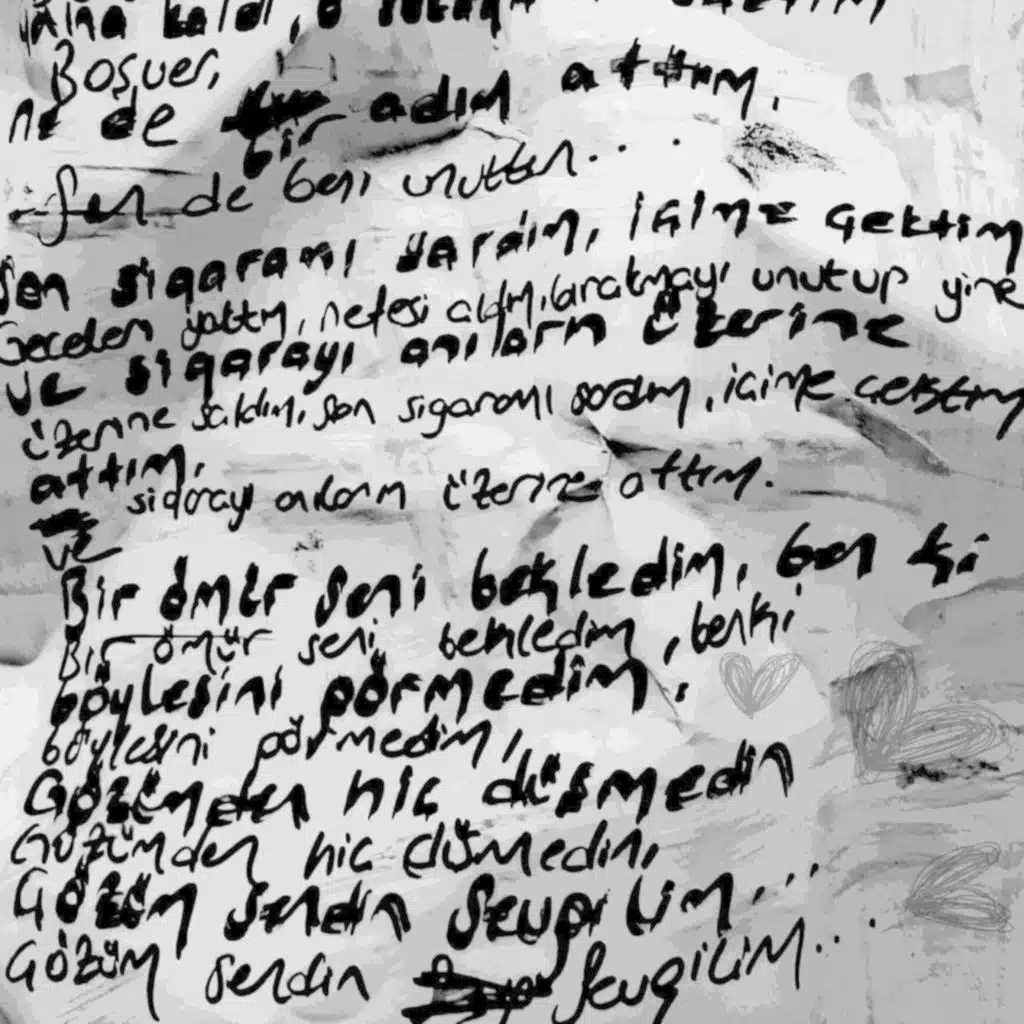 kaldı, o
Boşver,
ne de bir adım attım,
Sen de beni unuttun...
Son sigaramı sardım, içime çektim
Geceden yattım, nefesi aldım, bırakmayı unutup yine
ve sigarayı anıların üzerine
üzerine saldım, son sigaramı sardım, içime çektim
attım.
sigarayı anıların üzerine attım.
ve
Bir ömür seni bekledim, ben ki
Bir ömür seni bekledim, belki
böylesini görmedim,
böylesini görmedim,
Gözümden hiç düşmedin
Gözümden hiç düşmedin,
Gözüm sendin sevgilim...
Gözüm sendin Sevgilim...